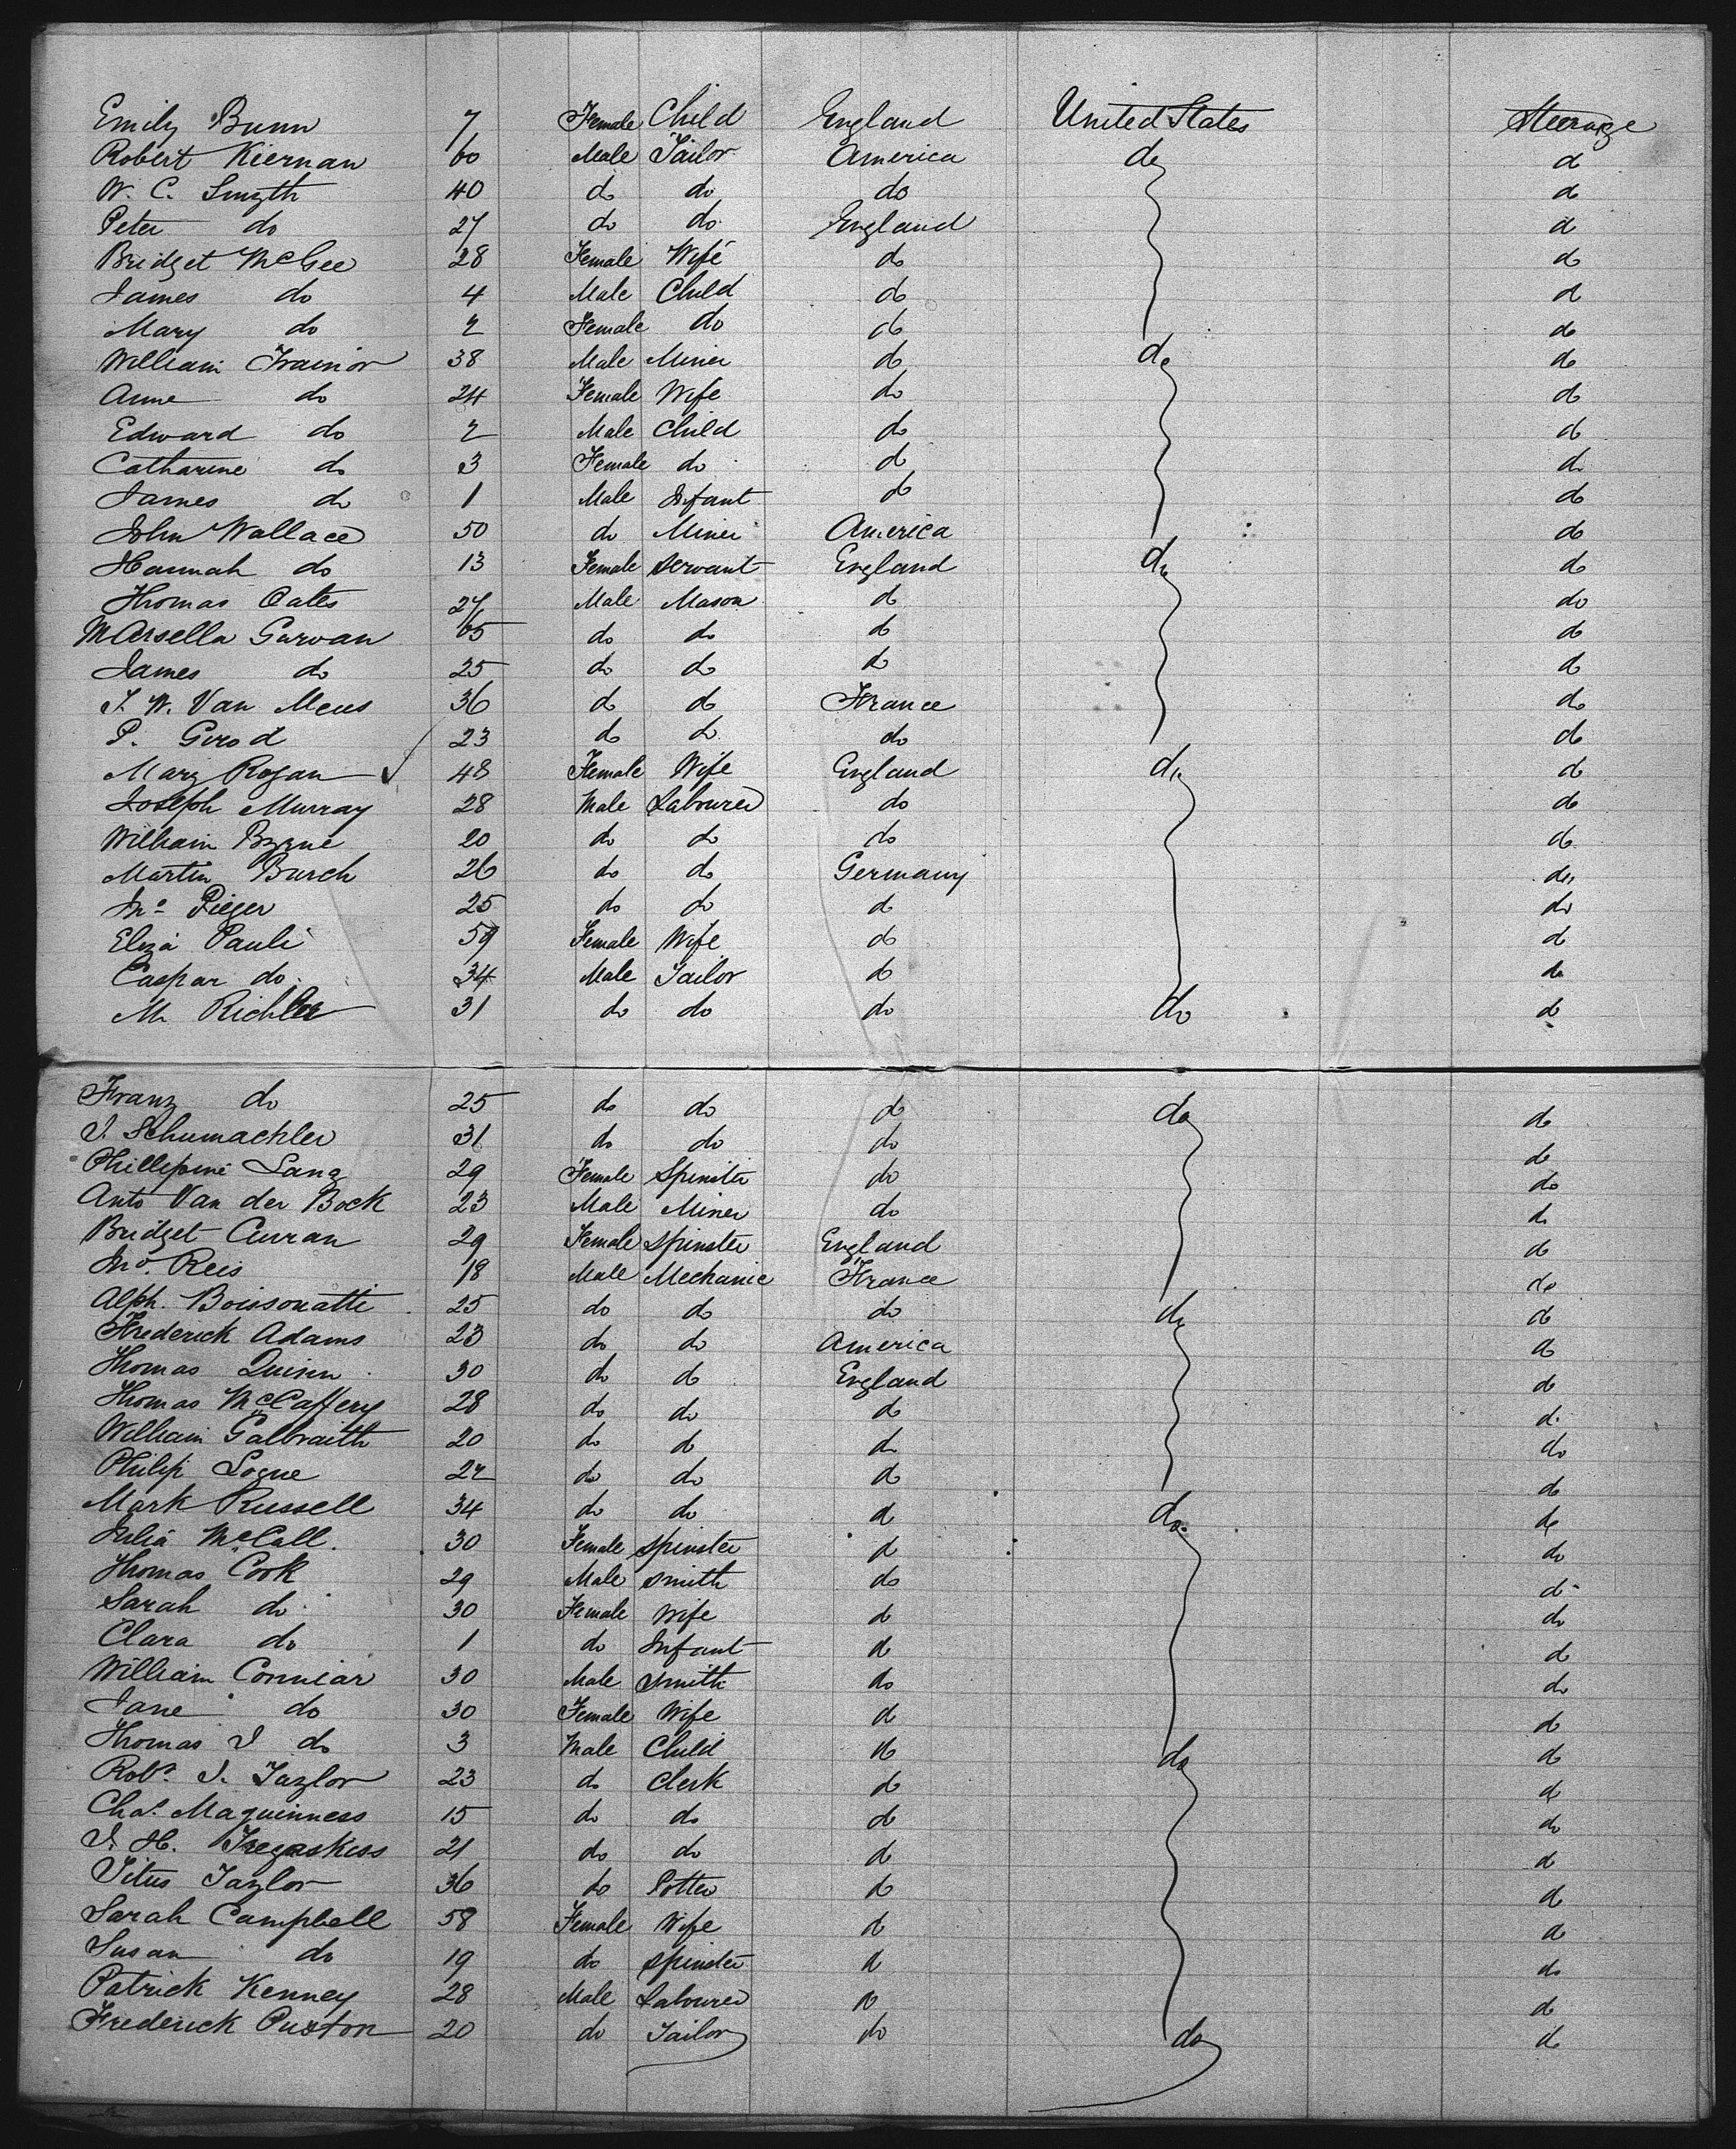 Emily Bunn 7 Female Child England United States Steerage
Robert Kiernan 60 Male Tailor America do do
W. C. Smyth 40 do do do do
Peter do 27 do do England do
Bridget McGee 28 Female Wife do do
James do 4 Male Child do do
Mary do 2 Female do do do
William Trainor 38 Male Miner do do do
Anne do 24 Female Wife do do
Edward do 2 Male Child do do
Catharine do 3 Female do do do
James do 1 Male Infant do do
John Wallace 50 do Miner America do
Hannah do 13 Female Servant England do do
Thomas Oates 27 Male Mason do do
Marsella Garvan 65 do do do do
James do 25 do do do do
J. W. Van Mens 36 do do France do
P. Girod 23 do do do do
Mary Rogan ✓ 48 Female Wife England do do
Joseph Murray 28 Male Labourer do do
William Byrne 20 do do do do
Martin Burch 26 do do Germany do
Jno Pieger 25 do do do do
Eliza Pauli 59 Female Wife do do
Caspar do 34 Male Tailor do do
M. Richler 31 do do do do do
Franz do 25 do do do do do
J. Schumachler 31 do do do do
Phillipine Lang 29 Female Spinster do do
Anto Van der Bock 23 Male Miner do do
Bridget Curran 29 Female Spinster England do
Jno. Reis 18 Male Mechanic France do
Alph. Boissonatti 25 do do do do do
Frederick Adams 23 do do America do
Thomas Quinn 30 do do England do
Thomas McCaffery 28 do do do do
William Galbraith 20 do do do do
Philip Logue 22 do do do do
Mark Russell 34 do do do do do
Julia McCall 30 Female Spinster do do
Thomas Cook 29 Male Smith do do
Sarah do 30 Female Wife do do
Clara do 1 do Infant do do
William Conniar 30 Male Smith do do
Jane do 30 Female Wife do do
Thomas J do 3 Male Child do do do
Robt. J. Taylor 23 do Clerk do do
Chas. Maguinness 15 do do do do
J. H. Tregaskiss 21 do do do do
Titus Taylor 36 do Potter do do
Sarah Campbell 58 Female Wife do do
Susan do 19 do Spinster do do
Patrick Kenney 28 Male Labourer do do
Frederick Puxton 20 do Tailor do do do